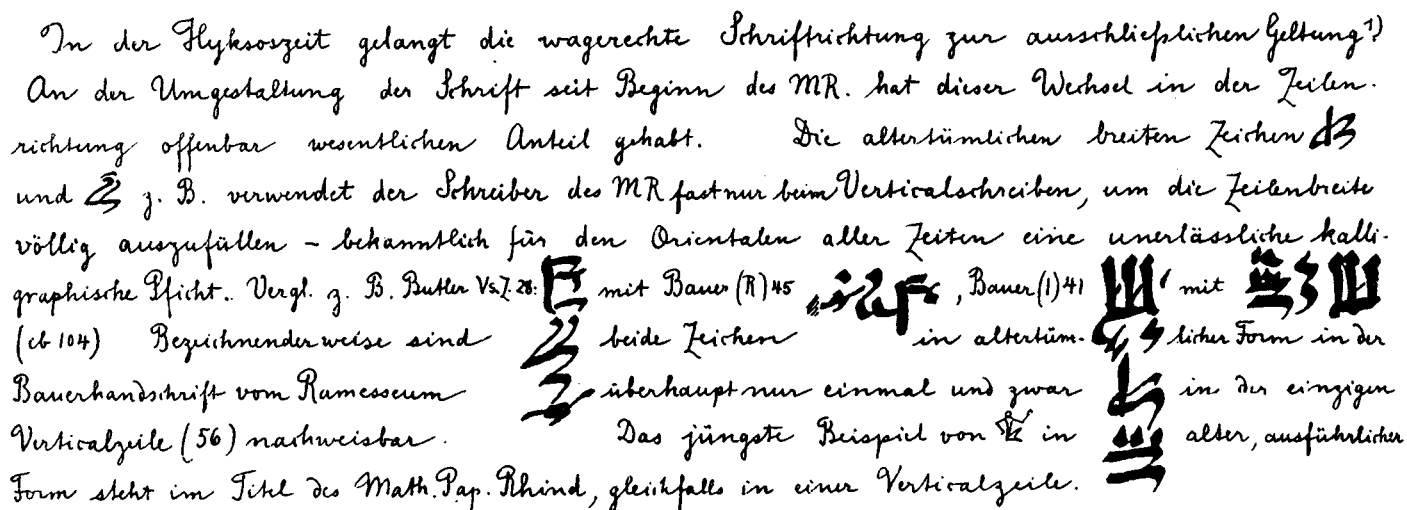 In der Hyksoszeit gelangt die wagerechte Schriftrichtung zur ausschließlichen Geltung¹)
An der Umgestaltung der Schrift seit Beginn des MR. hat dieser Wechsel in der Zeilen-
richtung offenbar wesentlichen Anteil gehabt. Die altertümlichen breiten Zeichen
und z. B. verwendet der Schreiber des MR fast nur beim Verticalschreiben, um die Zeilenbreite
völlig auszufüllen – bekanntlich für den Orientalen aller Zeiten eine unerlässliche kalli-
graphische Pflicht. Vergl. z. B. Butler Vs. Z. 28: mit Bauer (R) 45 , Bauer (1) 41 mit
(eb 104) Bezeichnenderweise sind beide Zeichen in altertüm- licher Form in der
Bauerhandschrift vom Ramesseum überhaupt nur einmal und zwar in der einzigen
Verticalzeile (56) nachweisbar. Das jüngste Beispiel von in alter, ausführlicher
Form steht im Titel des Math. Pap. Rhind, gleichfalls in einer Verticalzeile.